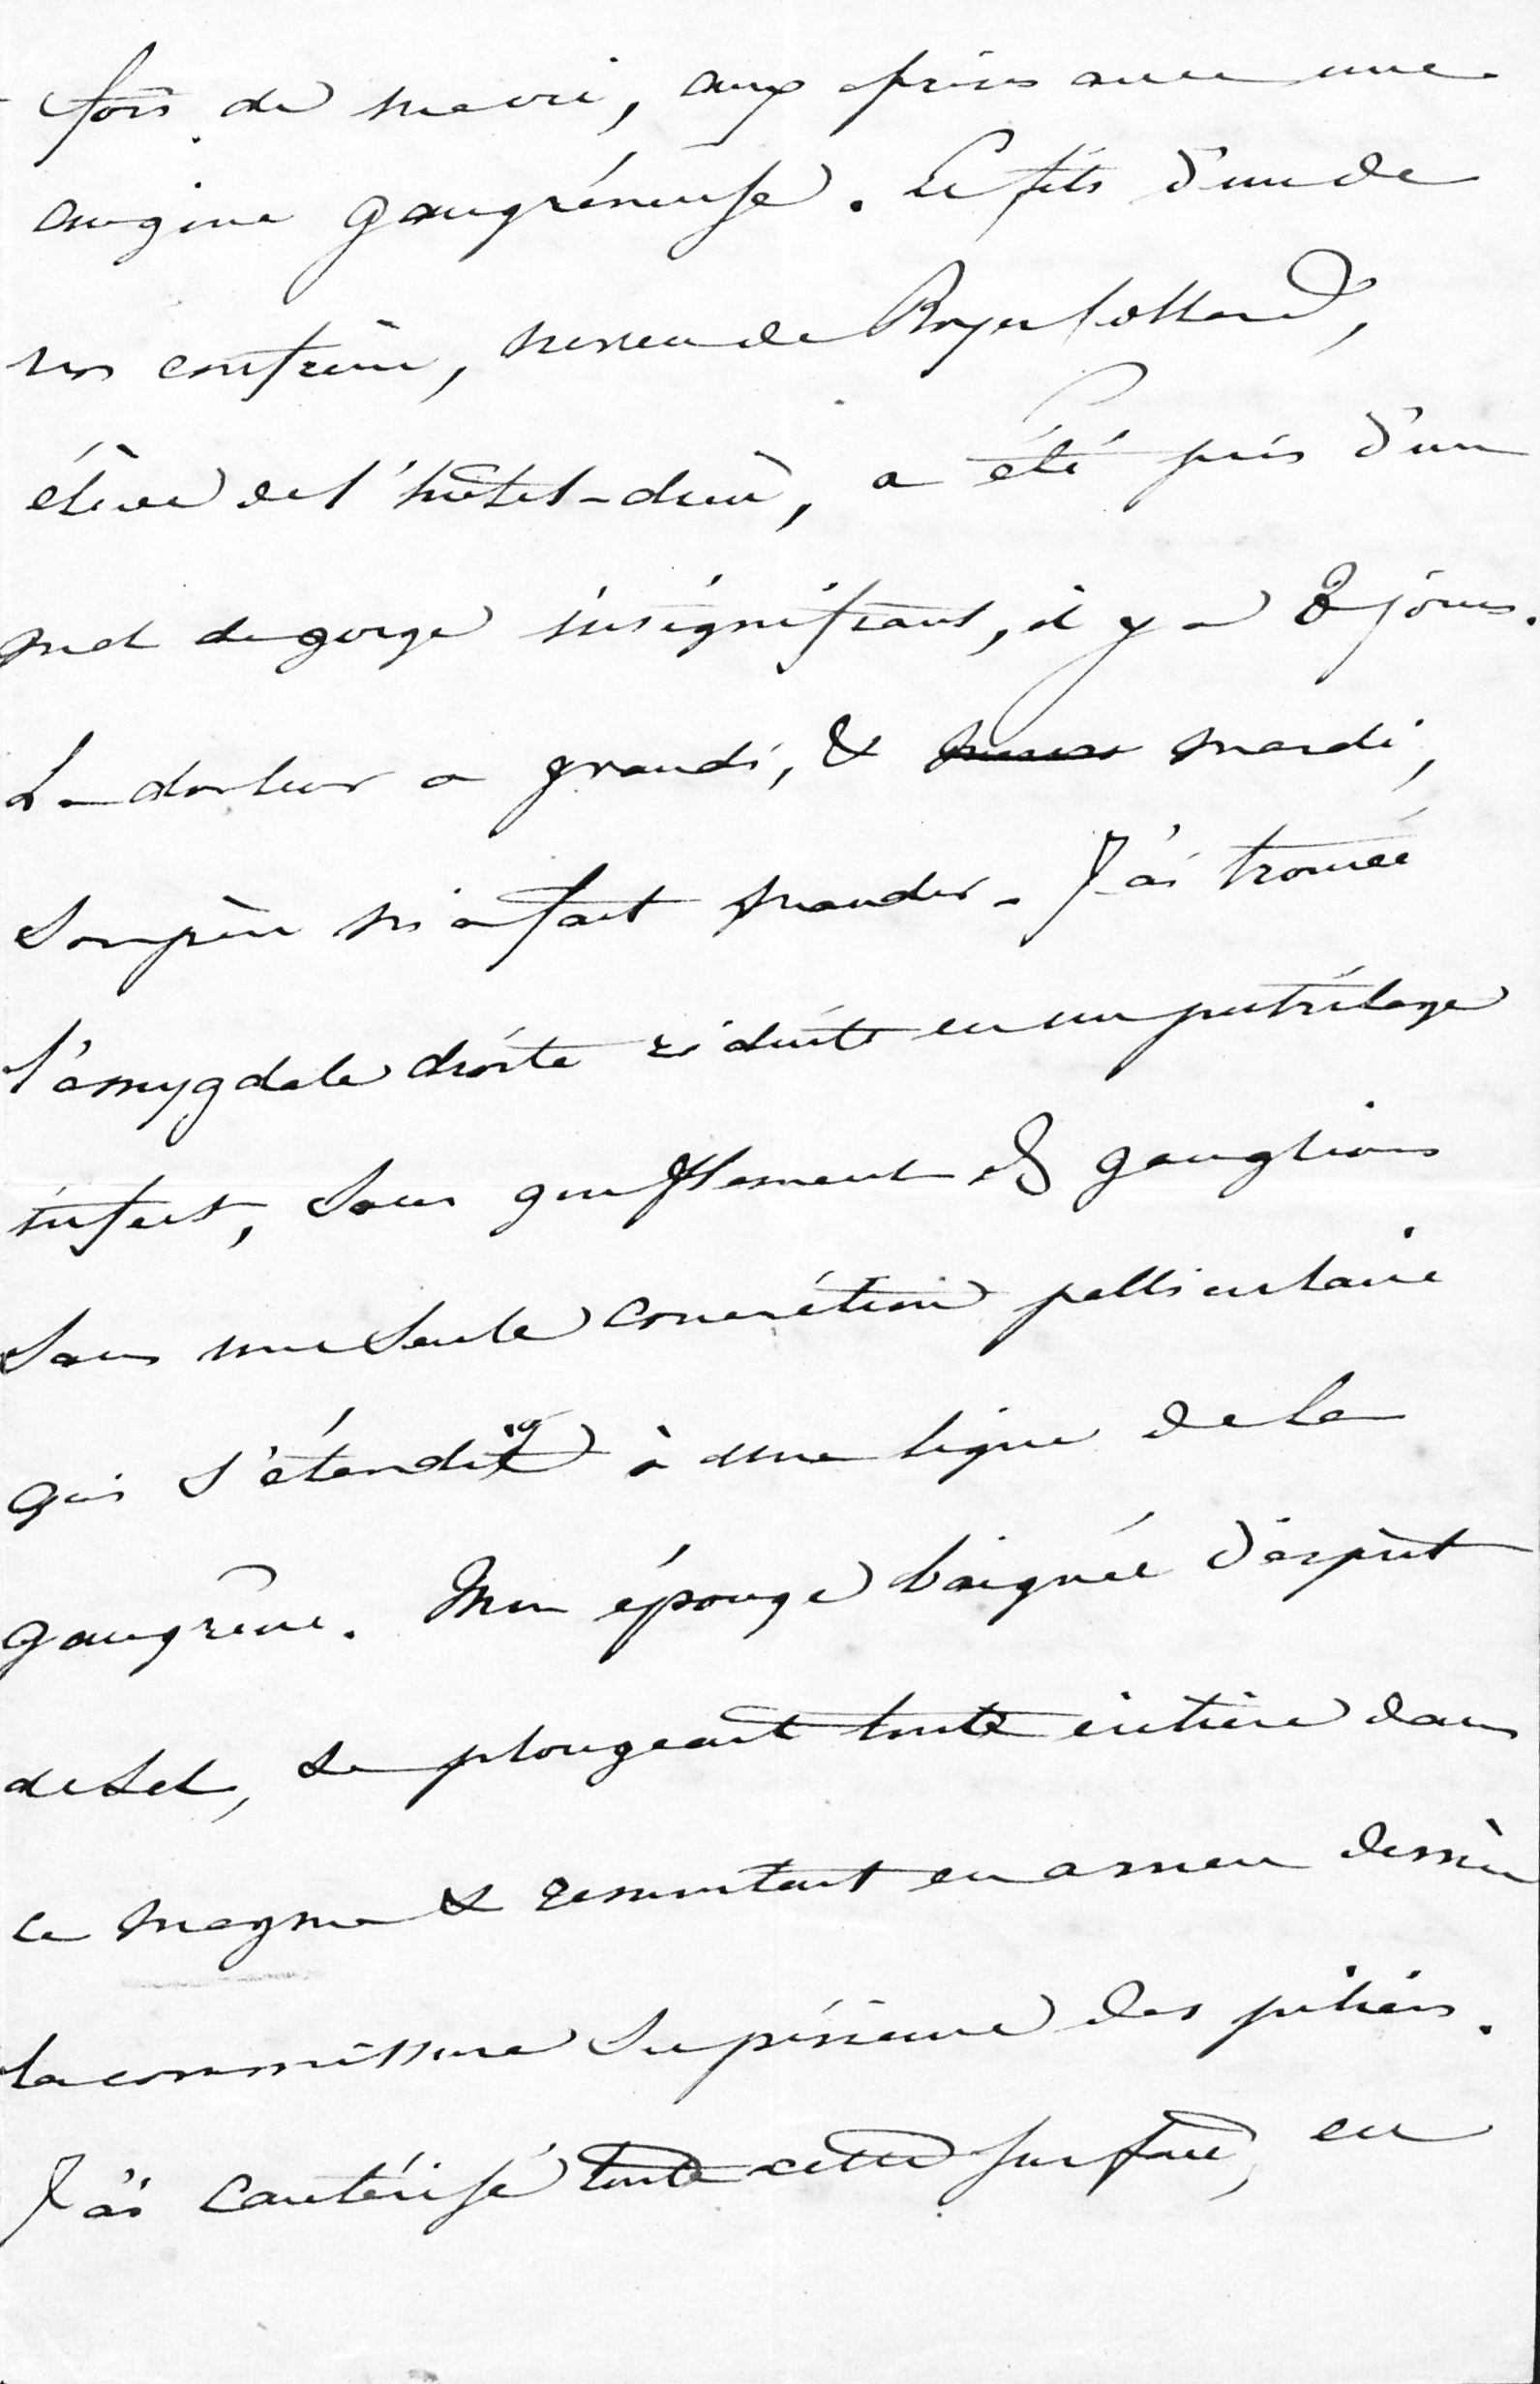 fois de ma vie, aux prises avec une
angine gangréneuse. Le fils d'un de
nos confrères, neveu de Royer Collard,
élève de l'hôtel-dieu, a été pris d'un
mal de gorge insignifiant, il y a 8 jours.
La douleur a grandi, & mardi,
son père m'a fait mander. J'ai trouvé
l'amygdale droite réduite en un putrilage
infect, sans gonflement des ganglions
sans une seule concrétion pelliculaire
qui s'étendit à une ligne de la
gangrène. Mon éponge baignée d'esprit
de sel, se plongeait toute entière dans
ce magma & remontait en arrière derrière
la commissure supérieure des piliers.
J'ai cautérisé toute cette surface, en